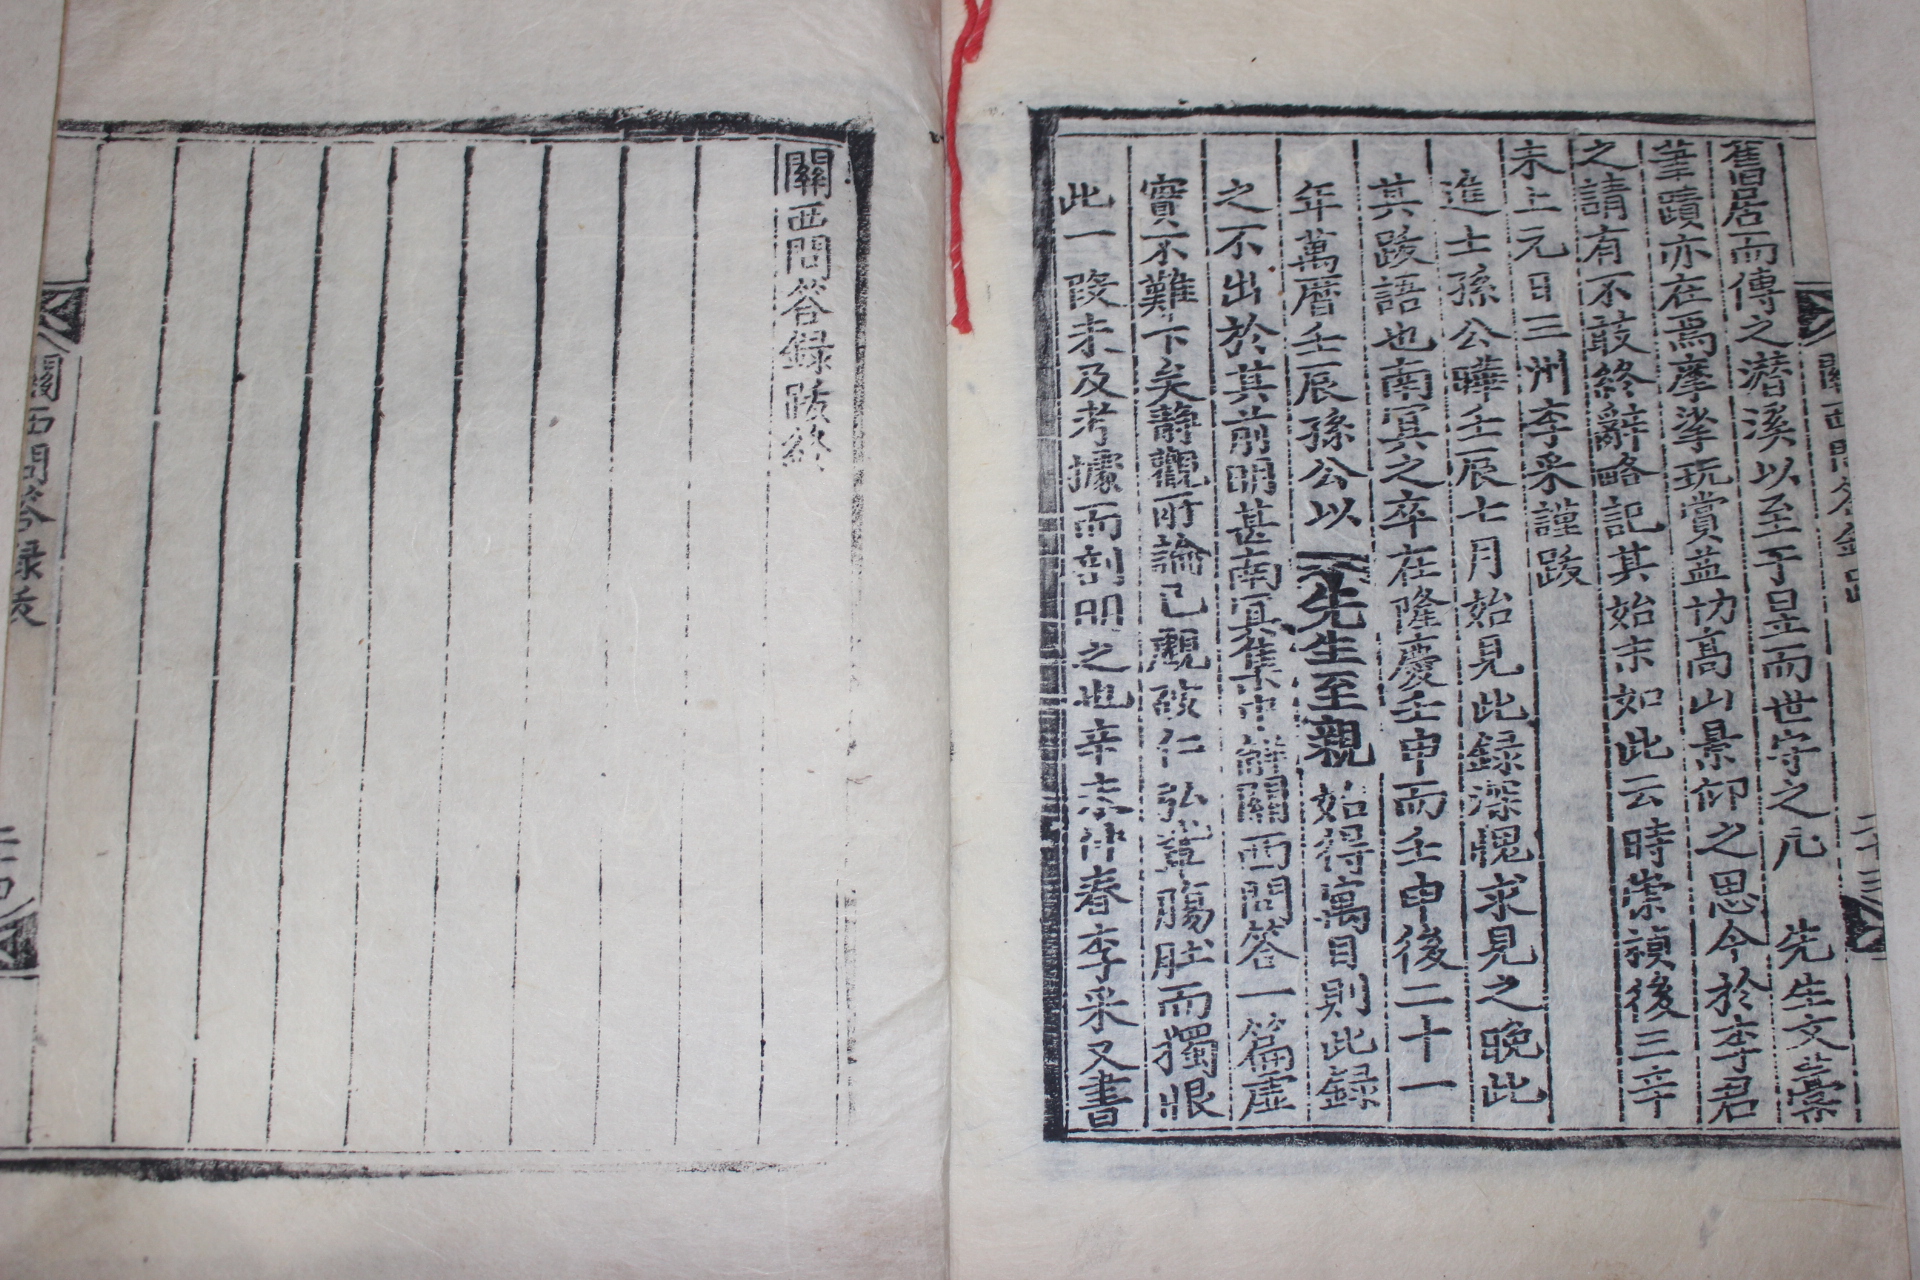 舊居而傳之潜溪以至于昰而世守之凡　先生文藁
筆蹟亦在焉摩挲玩賞益切高山景仰之思今於李君
之請有不敢終辭略記其始末如此云時崇禎後三辛
未上元日三州李采謹跋
進士孫公曄壬辰七月始見此録深愧求見之晚此
其跋語也南冥之卒在隆慶壬申而壬申後二十一
年萬曆壬辰孫公以先生至親始得寓目則此録
之不出於其前明甚南冥集中解關西問答一篇虛
實不難卞矣静觀所論已覷破仁弘輩腸肚而獨恨
此一段未及考據而剖明之也辛未仲春李采又書
關西問答録跋終
關西問答録跋
二十三
關西問答録跋
二十四